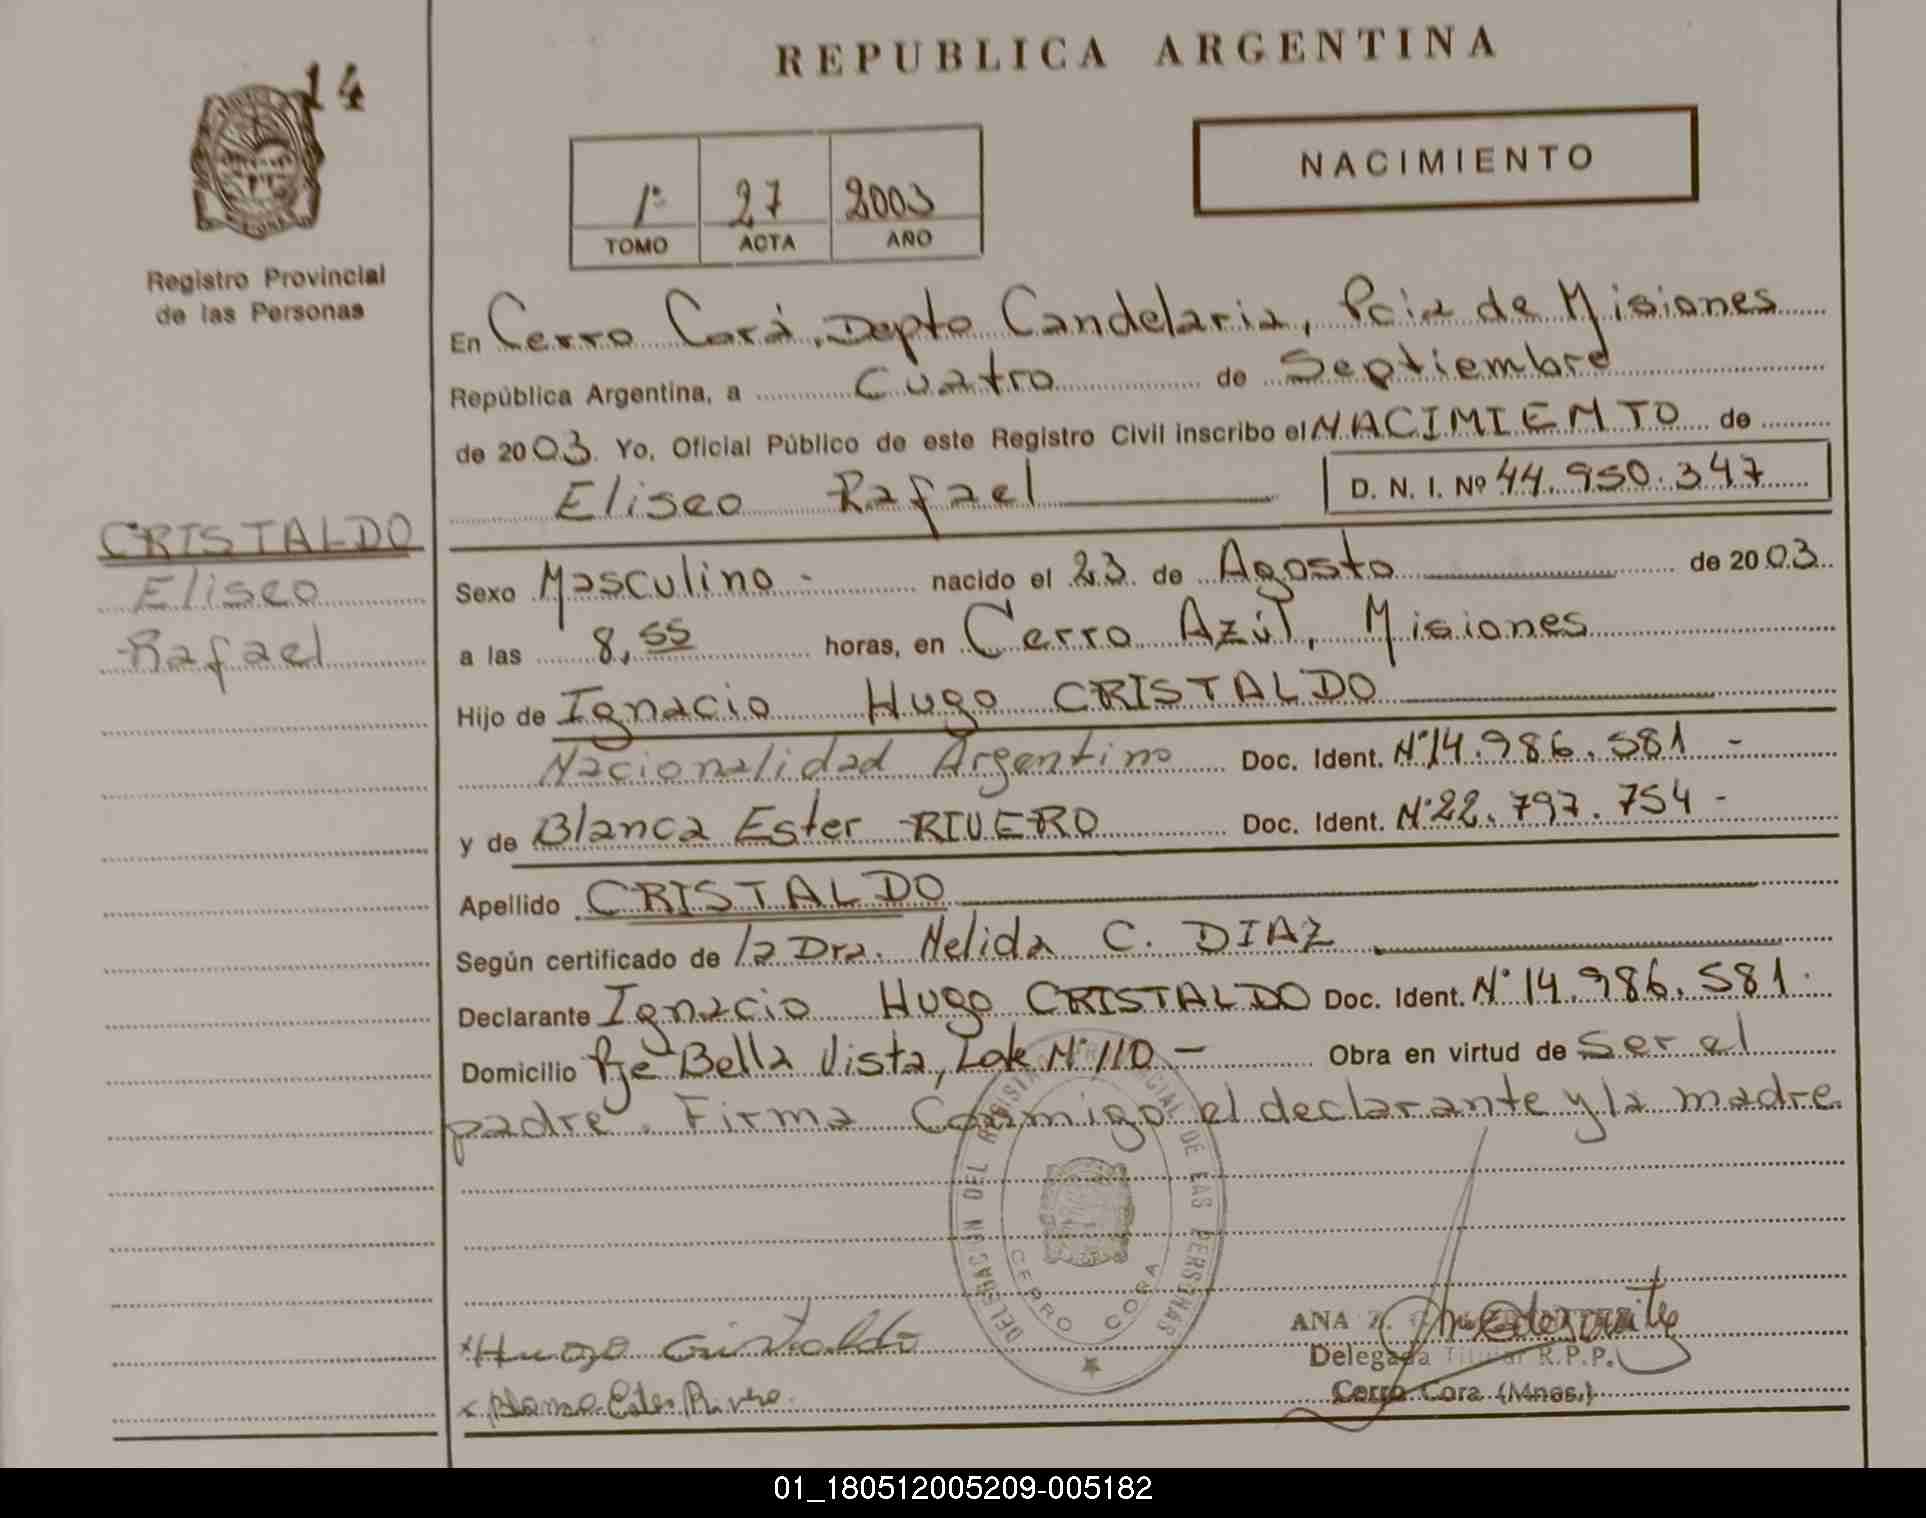 14
REPUBLICA ARGENTINA
NACIMIENTO
1º 27 2003
TOMO ACTA AÑO
Registro Provincial
de las Personas
En Cerro Corá, Depto Candelaria, Pcia de Misiones
República Argentina, a cuatro de Septiembre
de 2003. Yo, Oficial Público de este Registro Civil inscribo el NACIMIENTO de
Eliseo Rafael D. N. I. Nº 44.950.347
CRISTALDO
Eliseo
Rafael
Sexo Masculino - nacido el 23 de Agosto de 2003
a las 8,55 horas, en Cerro Azúl, Misiones
Hijo de Ignacio Hugo CRISTALDO
Nacionalidad Argentino Doc. Ident. Nº 14.986.581 -
y de Blanca Ester RIVERO Doc. Ident. Nº 22.797.754 -
Apellido CRISTALDO
Según certificado de la Dra. Nelida C. DIAZ
Declarante Ignacio Hugo CRISTALDO Doc. Ident. Nº 14.986.581.
Domicilio Pje Bella Vista, Lote Nº 110 - Obra en virtud de Ser el
padre. Firma Conmigo el declarante y la madre.
DELEGACION DEL REGISTRO PROVINCIAL DE LAS PERSONAS
CERRO CORA
x Hugo Cristaldo
x Blanca Ester Rivero.
ANA Z.
Delegada Titular R.P.P.
Cerro Cora (Mnes.)
01_180512005209-005182